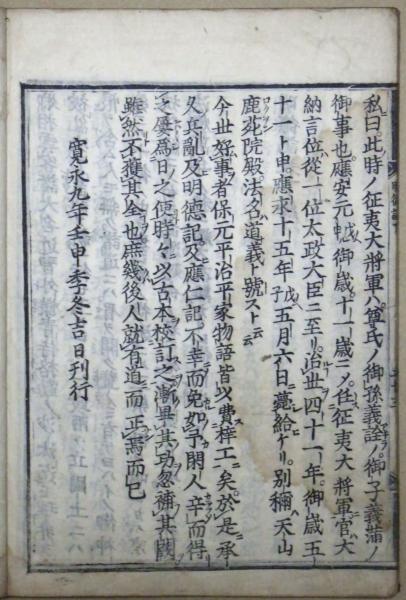 私曰此時ノ征夷大將軍ハ尊氏ノ御孫義詮ノ御子義滿ノ
御事也應安元戊申御歳十一歳ニメ任征夷大將軍官大
納言位從一位太政大臣ニ至リ治世四十一年御歳五
十一ト申應永十五年戊子五月六日薨給ケリ別稱天山
鹿苑院殿法名道義ト號スト云云
今世好事者保元平治平家物語皆以費梓工矣於是承
久兵亂及明德記及應仁記不幸而免如予閑人辛而得
之屡爲日之便時々以古本校訂之漸畢其功忽補其闕
雖然不獲其全也庶幾後人就有道而正焉而已
寛永九年壬申季冬吉日刊行